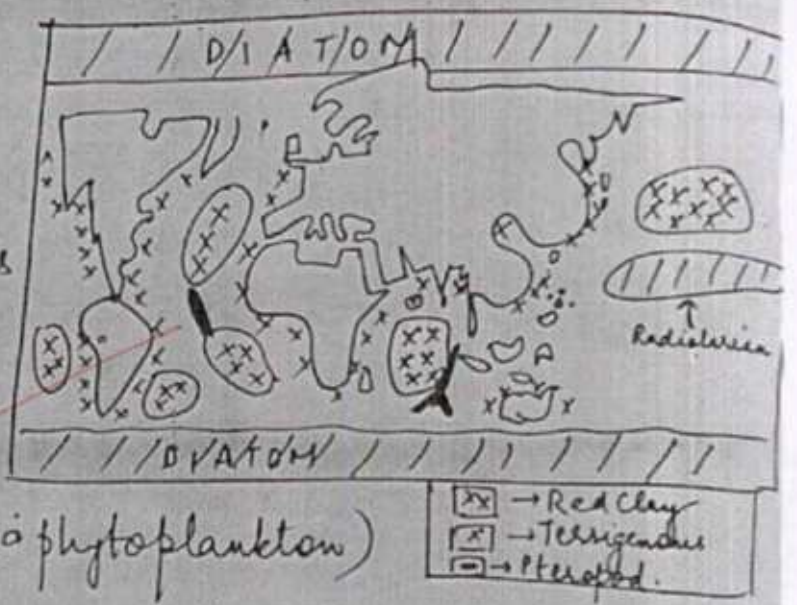 DIATOM
Radiolarian
DIATOM
phytoplankton)
→ Red Clay
→ Terrigenous
→ Pteropod.